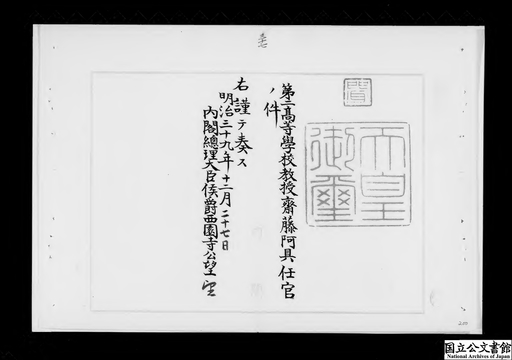 天皇御璽
第二高等學校教授齋藤阿具任官
ノ件
右謹テ奏ス
明治三十九年十二月二十七日
內閣總理大臣侯爵西園寺公望
国立公文書館
National Archives of Japan